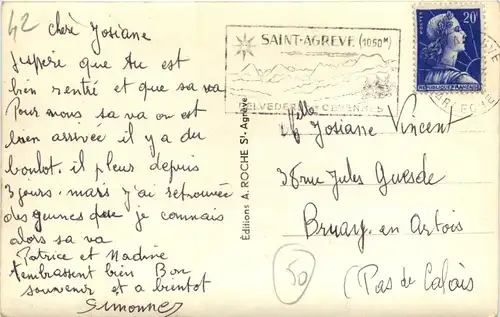 42
chère Josiane
J'espère que tu est
bien rentré et que sa va
Pour nous sa va on est
bien arrivée il y a du
boulot. il pleus depuis
3 jours. mais j'ai retrouvée
des jeunes que je connais
alors sa va
Patrice et Nadine
t'embrassent bien Bon
souvenir et a bientot
Simonne
Editions A. ROCHE St-Agrève
SAINT-AGREVE (1050M)
BELVEDERE CEVENNES
POSTES 20F
REPUBLIQUE FRANÇAISE
Melle Josiane Vincent
38 rue Jules Guesde
Bruay. en Artois
(Pas de Calais
50